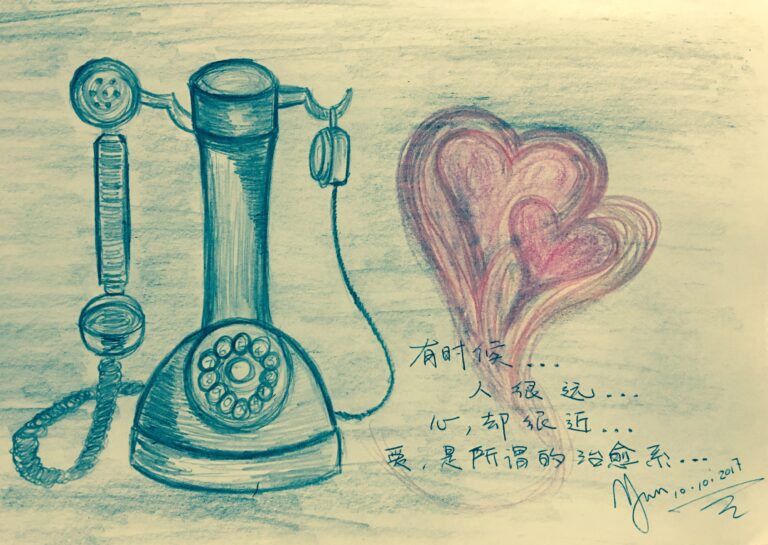 有时候...
人很远...
心,却很近...
爱,是所谓的治愈系...
Yun 10.10.2017